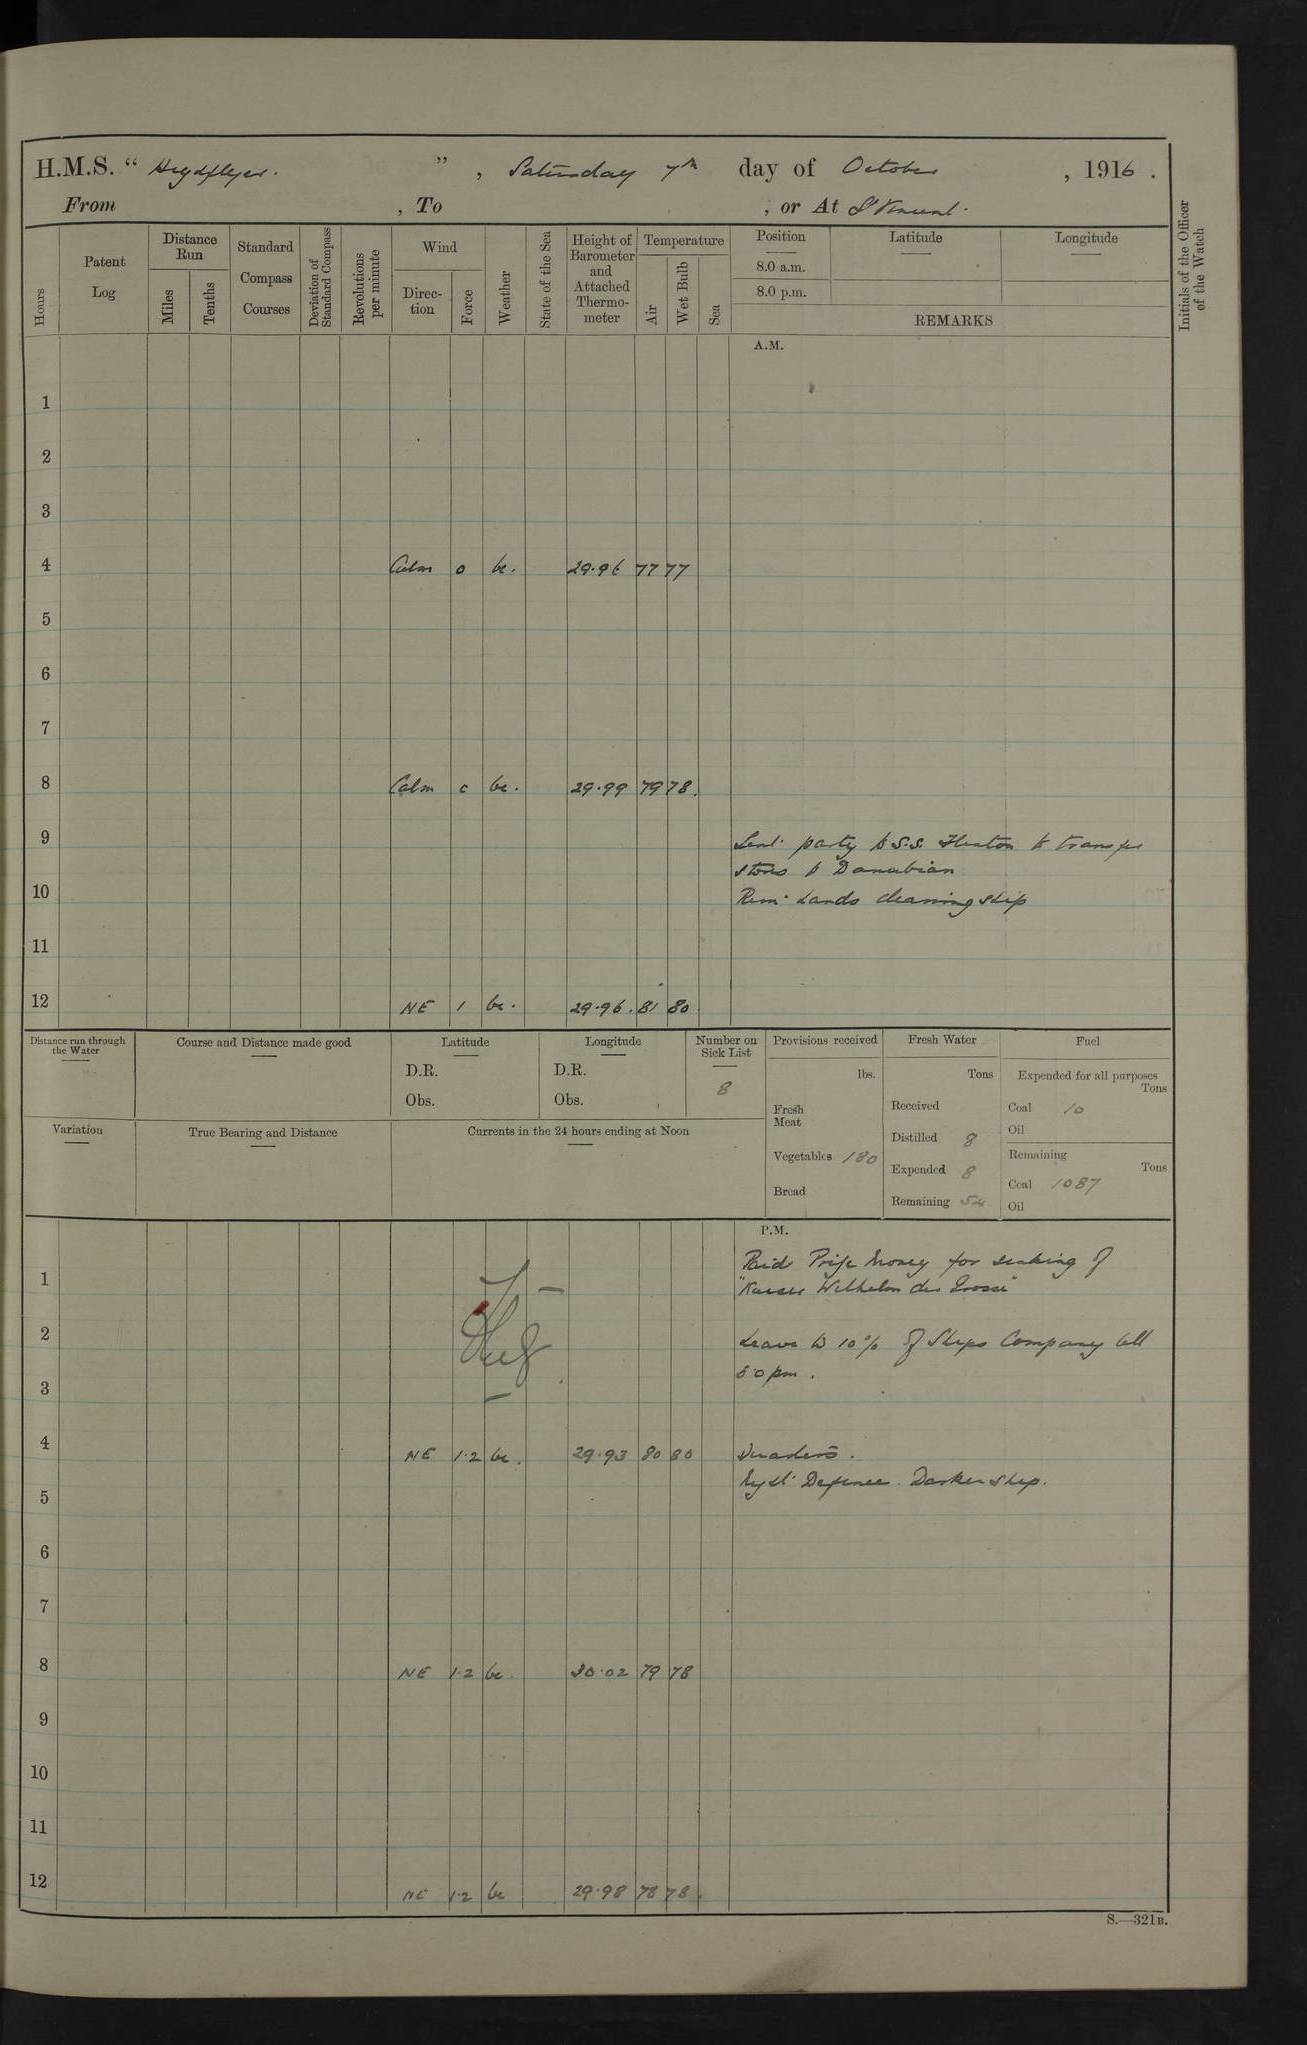 H.M.S. “ Highflyer. ” , Saturday 7th day of October , 1916 .
From , To , or At St Vincent.
Hours
Patent Log
Distance Run
Miles
Tenths
Standard Compass Courses
Deviation of Standard Compass
Revolutions per minute
Wind
Direc- tion
Force
Weather
State of the Sea
Height of Barometer and Attached Thermo- meter
Temperature
Air
Wet Bulb
Sea
Position
8.0 a.m.
8.0 p.m.
Latitude
Longitude
REMARKS
Initials of the Officer of the Watch
A.M.
1
2
3
4 Calm 0 bc. 29.96 77 77
5
6
7
8 Calm 0 bc. 29.99 79 78.
9
Sent party to S.S. Heaton to transfer
stores to Danubian
10
Rem. hands cleaning ship
11
12 NE 1 bc. 29.96. 81 80
Distance run through the Water
Course and Distance made good
Latitude
D.R.
Obs.
Longitude
D.R.
Obs.
Number on Sick List
8
Provisions received
lbs.
Fresh Meat
Vegetables 180
Bread
Fresh Water
Tons
Received
Distilled 8
Expended 8
Remaining 54
Fuel
Expended for all purposes
Tons
Coal 10
Oil
Remaining
Tons
Coal 1087
Oil
Variation
True Bearing and Distance
Currents in the 24 hours ending at Noon
P.M.
Paid Prize Money for sinking of
1
"Kaiser Wilhelm der Grosse"
2
Leave to 10% of Ships Company till
3
5.0 pm.
4 NE 1.2 bc. 29.93 80 80 Quarters.
Night Defence. Darken ship.
5
6
7
8 NE 1.2 bc 30.02 79 78
9
10
11
12 NE 1.2 bc 29.98 78 78.
S.—321B.